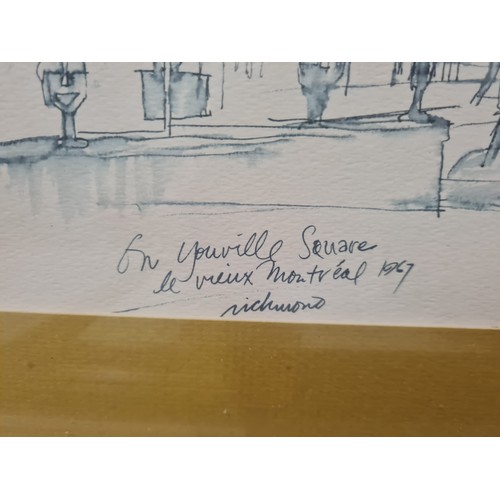 On Youville Square
le vieux Montréal 1967
richmond